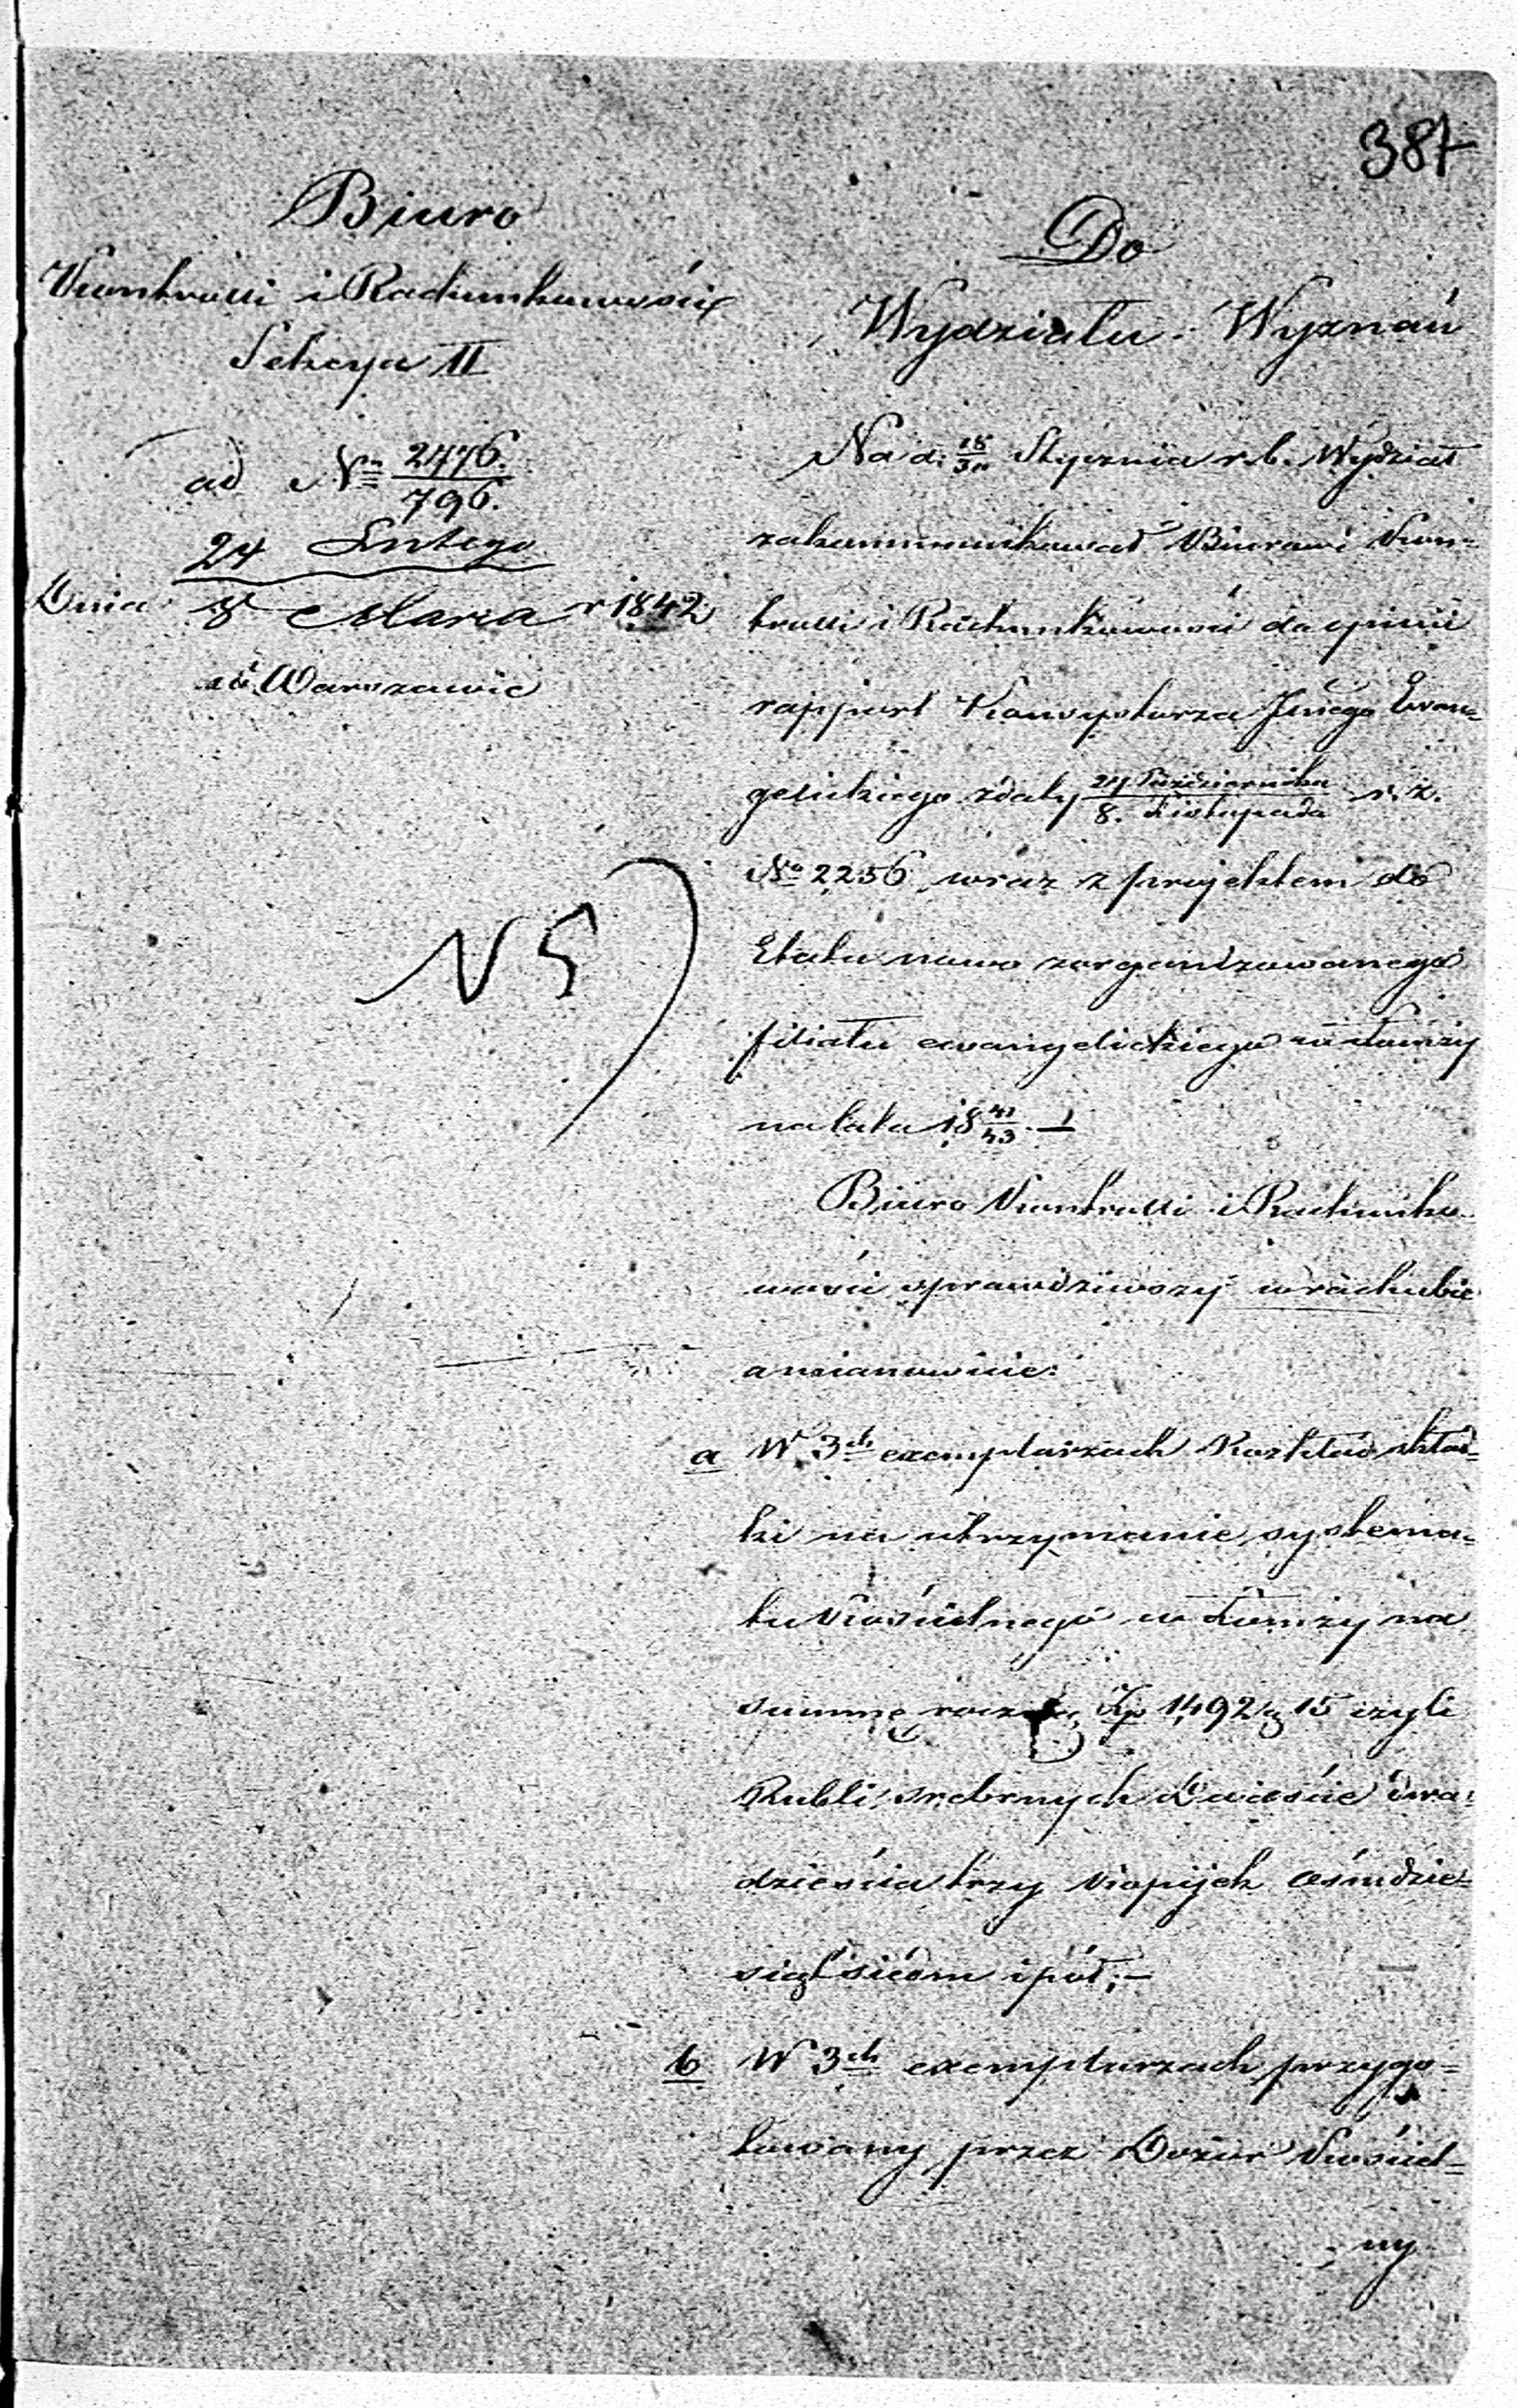 387
Biuro
Kontrolli i Rachunkowości
Sekcya II
ad No 2476./796.
24 Lutego
Dnia 8 Marca r 1842
w Warszawie
N5
Do
Wydziału Wyznań
Na d. 18/30 Stycznia r. b. Wydział
zakommunikował Biurowi Kon-
trolli i Rachunkowości do opinii
rapport Konsystorza Jlnego Ewan-
gelickiego z daty 24 Października/8. Listopada r. z.
No 2256 wraz z projektem do
Etatu nowo zorganizowanego
filiału ewangelickiego w Łomży
na lata 18 41/43. —
Biuro Kontrolli i Rachunko-
wości sprawdziwszy w rachubie
a mianowicie:
a W 3ch exemplarzach Rozkład skład-
ki na utrzymanie systema-
tu Kościelnego w Łomży na
summę roczną Złp 1492 g 15 czyli
Rubli srebrnych Dwieście dwa-
dzieścia trzy Kopijek ośmdzie-
siąt siedm i pół; —
b W 3ch exemplarzach przygo-
towany przez Dozór Kościel-
ny